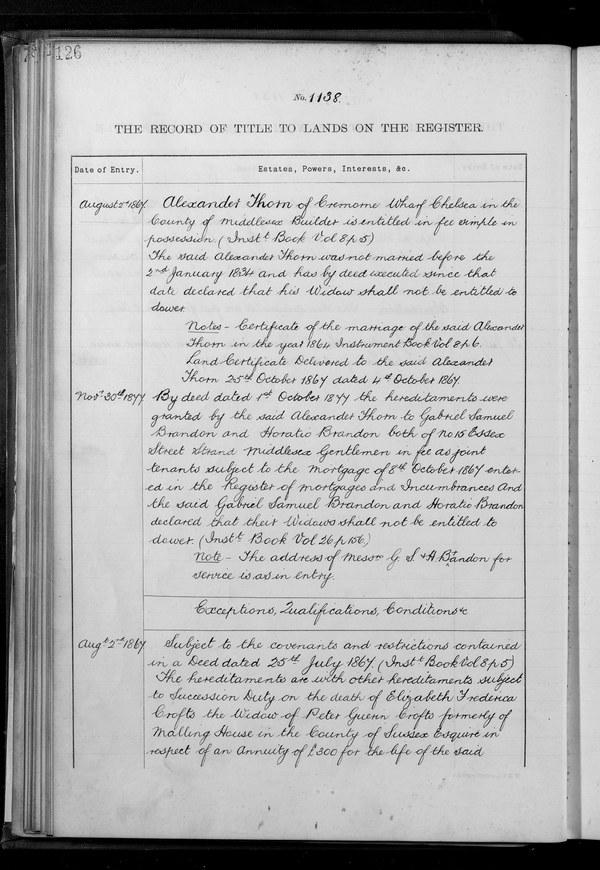 126
No. 1138.
THE RECORD OF TITLE TO LANDS ON THE REGISTER.
Date of Entry.
Estates, Powers, Interests, &c.
August 2nd 1867
Alexander Thorn of Cremorne Wharf Chelsea in the
County of Middlesex Builder is entitled in fee simple in
possession. (Instt Book Vol 8 p 5)
The said Alexander Thorn was not married before the
2nd January 1834 and has by deed executed since that
date declared that his Widow shall not be entitled to
dower.
Notes - Certificate of the marriage of the said Alexander
Thorn in the year 1864 Instrument Book Vol 8 p 6.
Land Certificate Delivered to the said Alexander
Thorn 25th October 1867 dated 4th October 1867.
Novr 30th 1877
By deed dated 1st October 1877 the hereditaments were
granted by the said Alexander Thorn to Gabriel Samuel
Brandon and Horatio Brandon both of No 15 Essex
Street Strand Middlesex Gentlemen in fee as joint
tenants subject to the Mortgage of 8th October 1867 enter-
ed in the Register of Mortgages and Incumbrances And
the said Gabriel Samuel Brandon and Horatio Brandon
declared that their Widows shall not be entitled to
dower. (Instt Book Vol 26 p 156.)
Note - The address of Messrs G. S. & H. Brandon for
service is as in entry.
Exceptions, Qualifications, Conditions &c
Augt 2nd 1867
Subject to the covenants and restrictions contained
in a Deed dated 25th July 1867. (Instt Book Vol 8 p 5)
The hereditaments are with other hereditaments subject
to Succession Duty on the death of Elizabeth Frederica
Crofts the Widow of Peter Guerin Crofts formerly of
Malling House in the County of Sussex Esquire in
respect of an Annuity of £300 for the life of the said